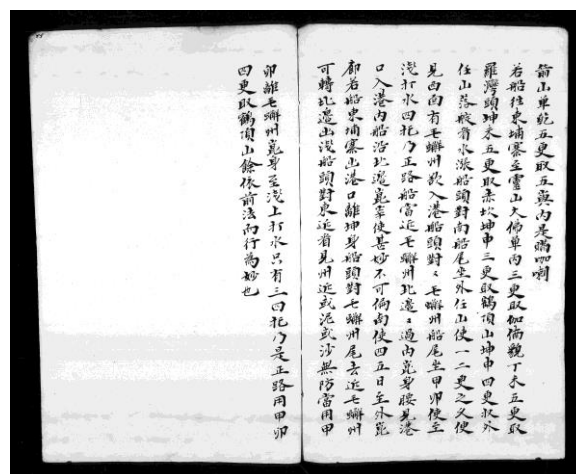 箭山單乾五更取五嶼內是嗎咖喇
若船往柬埔寨至靈山大佛單丙三更取伽倆貌丁未五更取
羅灣頭坤未五更取赤坎坤申三更取鶴頂山坤申四更取外
任山落舵看水漲船頭對南船尾坐外任山使一二更之久使
見西南有毛蠏州欲入港船頭對毛蠏州船尾坐甲卯使至
淺打水四托乃正路船當近毛蠏州北邊過內崑身腰見港
口入港內船沿北邊崑豪使甚妙不可偏南使四五日至外崑
廊若船柬埔寨出港口離坤身船頭對毛蠏州尾去近毛蠏州
可轉北邊出淺船頭對東近看見州近或泥或沙無防當用甲
卯離毛蠏州崑身至淺上打水只有三四托乃是正路用甲卯
四更取鶴頂山餘依前法而行為妙也